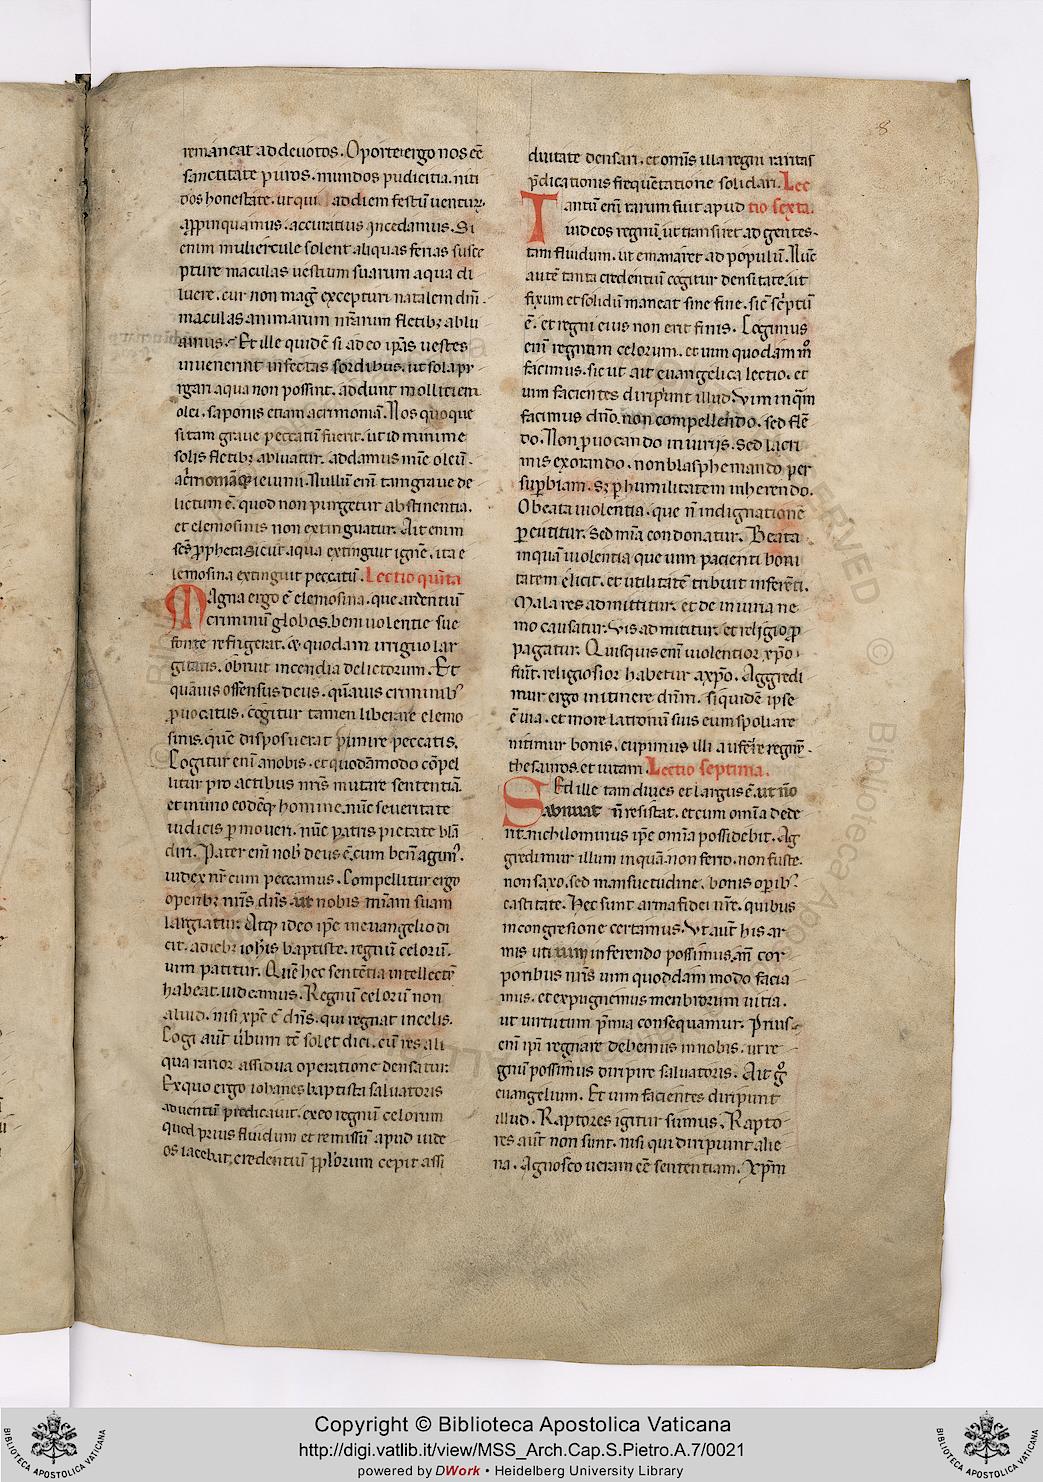 8
remaneat ad deuotos. Oportet ergo nos eē
sanctitate puros. mundos pudicitia. niti
dos honestate. ut qui ad diem festū uentur.
appinquamus. accuratius incedamus. Si
enim muliercule solent aliquas ferias susce
pture maculas uestium suarum aqua di
luere. cur non mag̅ excepturi natalem dn̄i.
maculas animarum nr̄arum fletibꝫ ablu
amus. Et ille quidē si adeo ip̄as uestes
inuenerint infectas sordibus. ut sola pur
rgari aqua non possint. addunt molliciem
olei. saponis etiam acrimoniā. Nos quoque
si tam graue peccatū fuerit. ut id minime
solis fletibꝫ abluatur. addamus mīe oleū.
acrimoniāqꝫ ieiunii. Nullū enī tam graue de
lictum ē. quod non purgetur abstinentia.
et elemosinis non extinguatur. Ait enim
scs̄ ꝓpheta. Sicut aqua extinguit ignē. ita e
lemosina extinguit peccatū. Lectio quīta
Magna ergo ē elemosina. que ardentiū
criminū globos. beniuolentie sue
fonte refrigerat. et quodam irriguo lar
gitatis. obruit incendia delictorum. Et
quāuis offensus deus. quāuis criminibꝰ
ꝓuocatus. cogitur tamen liberare elemo
sinis. quē disposuerat punire peccatis.
Cogitur enī a nobis. et quodāmodo cōpel
litur pro actibus nr̄is mutare sententiā.
et in uno eodēqꝫ homine. nūc seueritate
iudicis ꝑmoueri. nūc patris pietate blā
diri. Pater enī nob̄ deus ē. cum ben̄ agimꝰ.
iudex nr̄ cum peccamus. Compellitur ergo
operibꝫ nr̄is dn̄s. ut nobis mīam suam
largiatur. Atqꝫ ideo ip̄e in euangelio di
cit. a diebꝫ ioh̄is baptiste. regnū celorū.
uim patitur. Quē hec sentētia intellectū
habeat. uideamus. Regnū celorū non
aliud. nisi xp̄c ē dn̄s. qui regnat in celis.
Cogi aut̄ u̇bum tc̄ solet dici. cū res ali
qua rarior assidua operatione densatur.
Ex quo ergo iohanes baptista saluatoris
aduentū predicauit. ex eo regnū celorum
quod prius fluidum et remissū apud iude
os iacebat. credentiū pp̄lorum cepit assi
duitate densari. et omīs illa regni raritas
p̄dicationis frequētatione solidari. Lec
Tantū enī rarum fuit apud tio sexta.
iudeos regnū. ut transiret ad gentes.
tam fluidum. ut emanaret ad populū. Nūc
autē tanta credentiū cogitur densitate. ut
fixum et solidū maneat sine fine. sic̄ sc̄ptū
ē. et regni eius non erit finis. Cogimus
enī regnum celorum. et uim quodam m̊
facimus. sicut ait euangelica lectio. et
uim facientes diripiunt illud. Vim inqͣm
facimus dn̄o. non compellendo. sed flē
do. Non ꝓuocando iniuriis. Sed lacri
mis exorando. non blasphemando per
suꝑbiam. sꝫ ꝑ humilitatem inherendo.
O beata uiolentia. que n̄ indignatione
ꝑcutitur. sed mīa condonatur. Beata
inquā uiolentia que uim pacienti boni
tatem elicit. et utilitatē tribuit inferēti.
Mala res admittitur. et de iniuria ne
mo causatur. Vis admititur. et religio ꝓ
pagatur. Quisquis enī uiolentior xp̄o
fūit. religiosior habetur a xp̄o. Aggredi
mur ergo in itinere dn̄m. siquidē ipse
ē uia. et more latronū suis eum spoliare
nitimur bonis. cupimus illi auferre regnū.
thesauros. et uitam. Lectio septima.
Sed ille tam diues et largus ē. ut nō
abnuat n̄ resistat. et cum omīa dede
rit. nichilominus ip̄e omīa possidebit. Ag
gredimur illum inquā. non ferro. non fuste.
non saxo. sed mansuetudine. bonis oꝑibꝰ.
castitate. Hec sunt arma fidei nr̄e. quibus
in congresione certamus. Vt aut̄ his ar
mis uti inferendo possimus. an̄ cor
poribus nr̄is uim quodam modo facia
mus. et expugnemus menbrorum uitia.
ut uirtutum p̄mia consequamur. Prius
enī ip̄i regnare debemus in nobis. ut re
gnū possimus diripire saluatoris. Ait g̊
euangelium. Et uim facientes diripunt
illud. Raptores igitur sumus. Rapto
res aut̄ non sunt. nisi qui diripiunt alie
na. Agnosco ueram eē sententiam. Xp̄m
Copyright © Biblioteca Apostolica Vaticana
http://digi.vatlib.it/view/MSS_Arch.Cap.S.Pietro.A.7/0021
powered by DWork • Heidelberg University Library
BIBLIOTECA APOSTOLICA VATICANA
BIBLIOTECA APOSTOLICA VATICANA